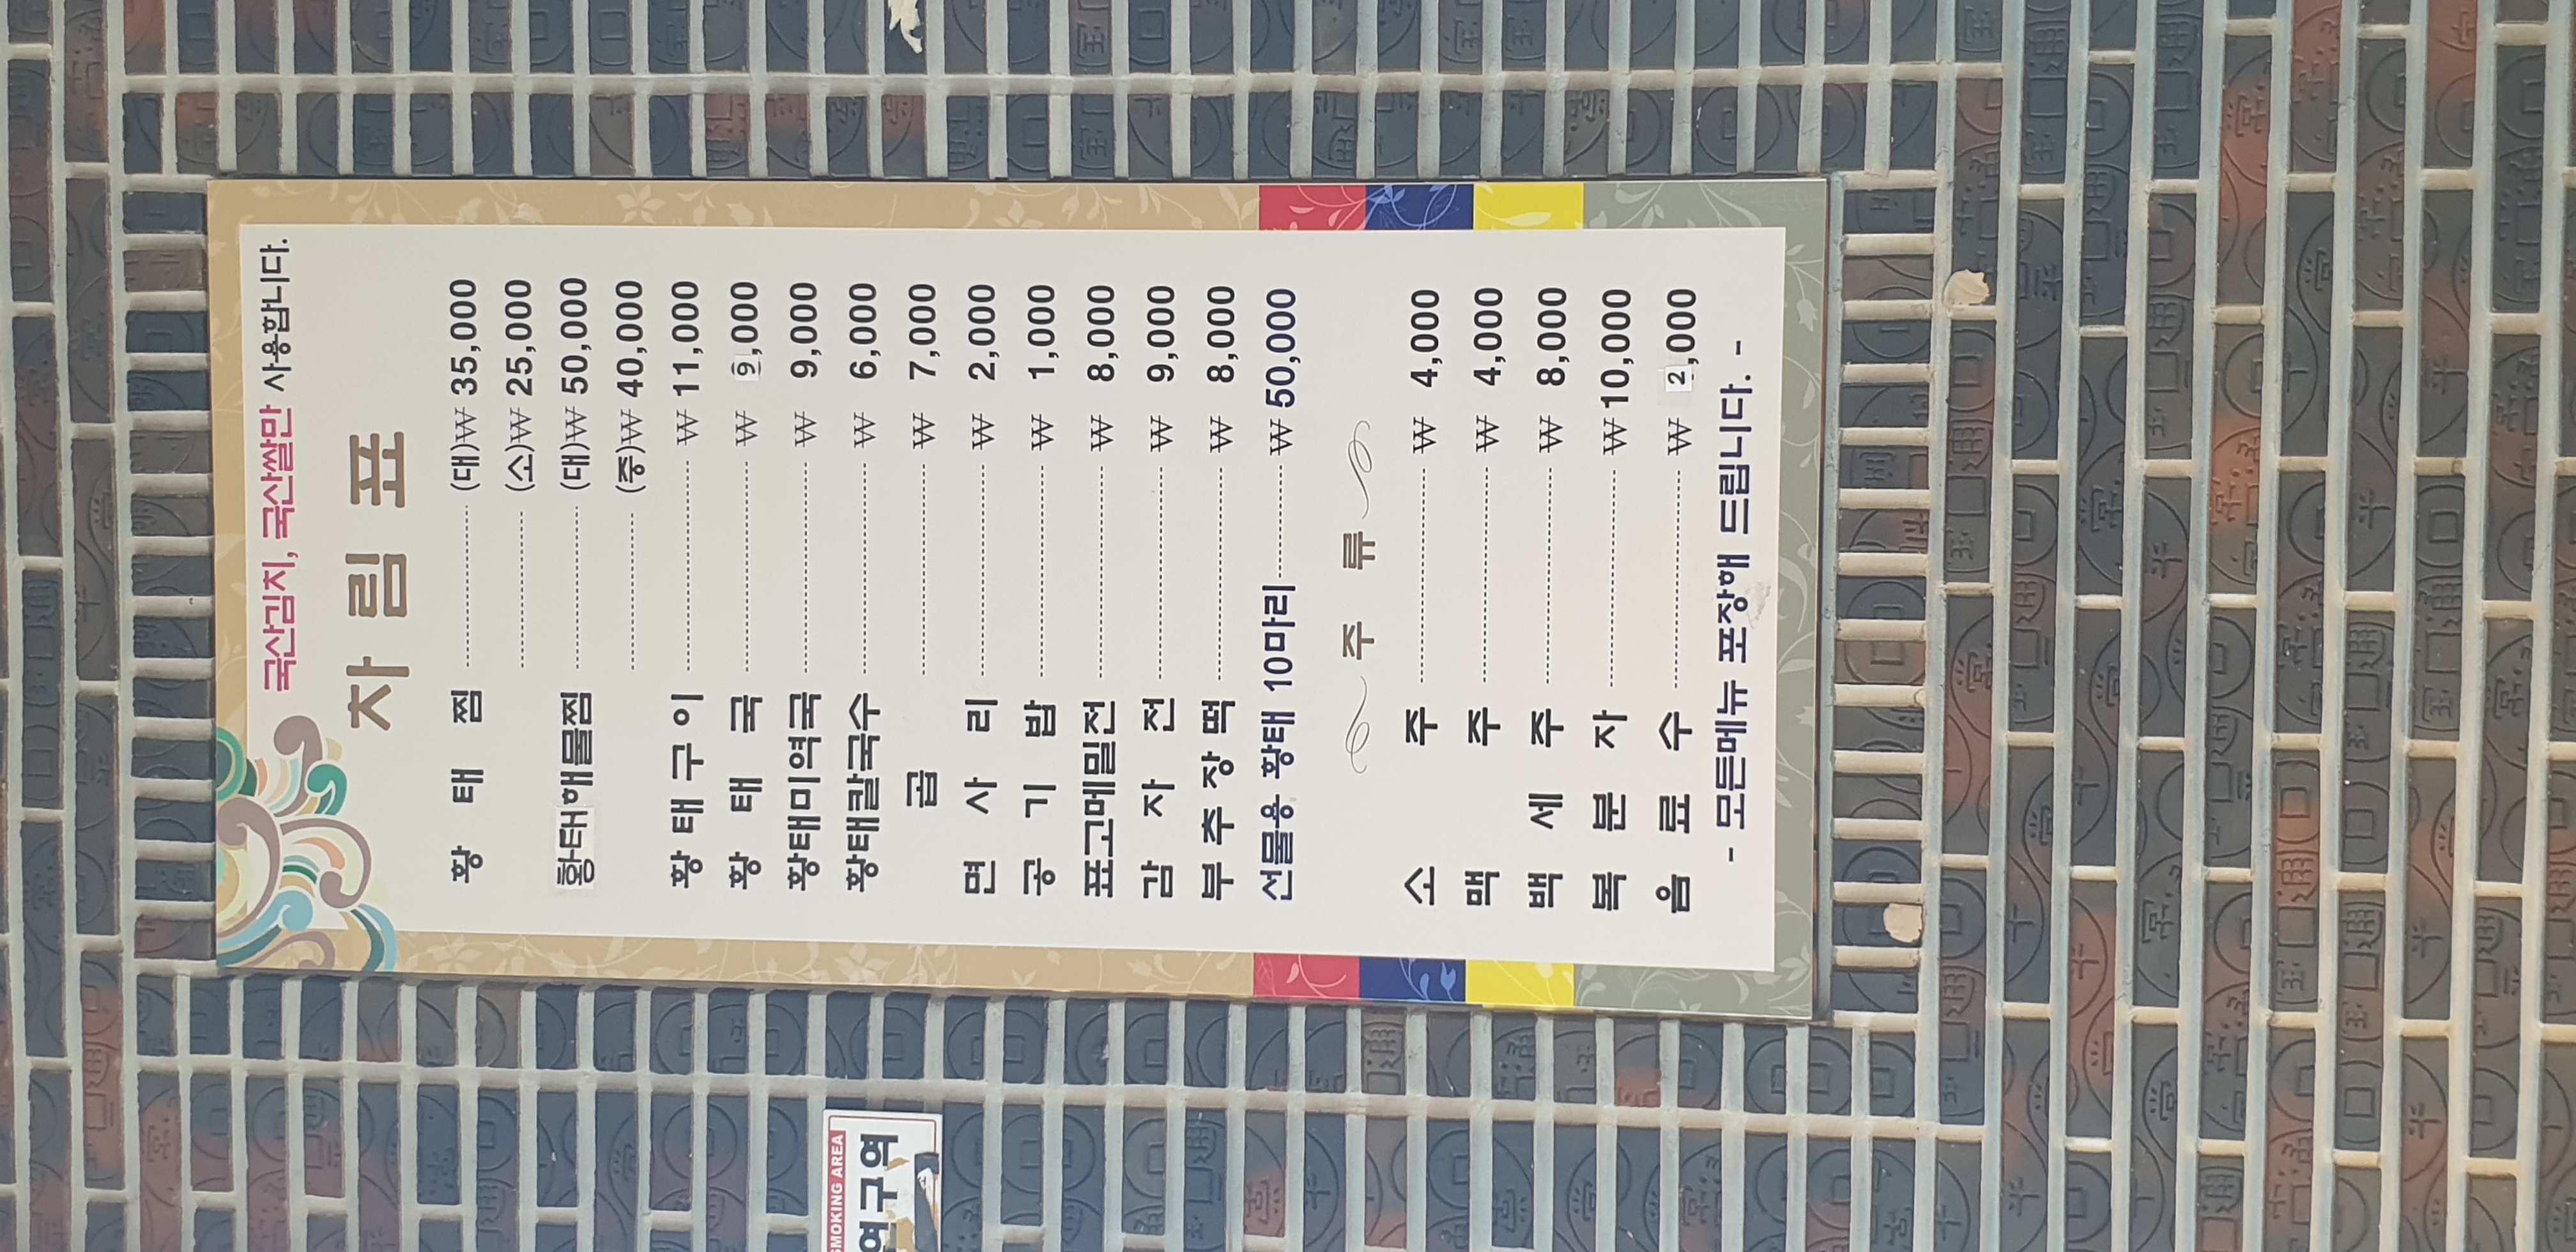 국산김치, 국산쌀만 사용합니다.
차 림 표
황 태 찜 (대)₩ 35,000
(소)₩ 25,000
황태해물찜 (대)₩ 50,000
(중)₩ 40,000
황 태 구 이 ₩ 11,000
황 태 국 ₩ 9,000
황태미역국 ₩ 9,000
황태칼국수 ₩ 6,000
곱 ₩ 7,000
면 사 리 ₩ 2,000
공 기 밥 ₩ 1,000
표고메밀전 ₩ 8,000
감 자 전 ₩ 9,000
부 추 장 떡 ₩ 8,000
선물용 황태 10마리 ₩ 50,000
주 류
소 주 ₩ 4,000
맥 주 ₩ 4,000
백 세 주 ₩ 8,000
복 분 자 ₩ 10,000
음 료 수 ₩ 2,000
- 모든메뉴 포장해 드립니다. -
SMOKING AREA
연구역